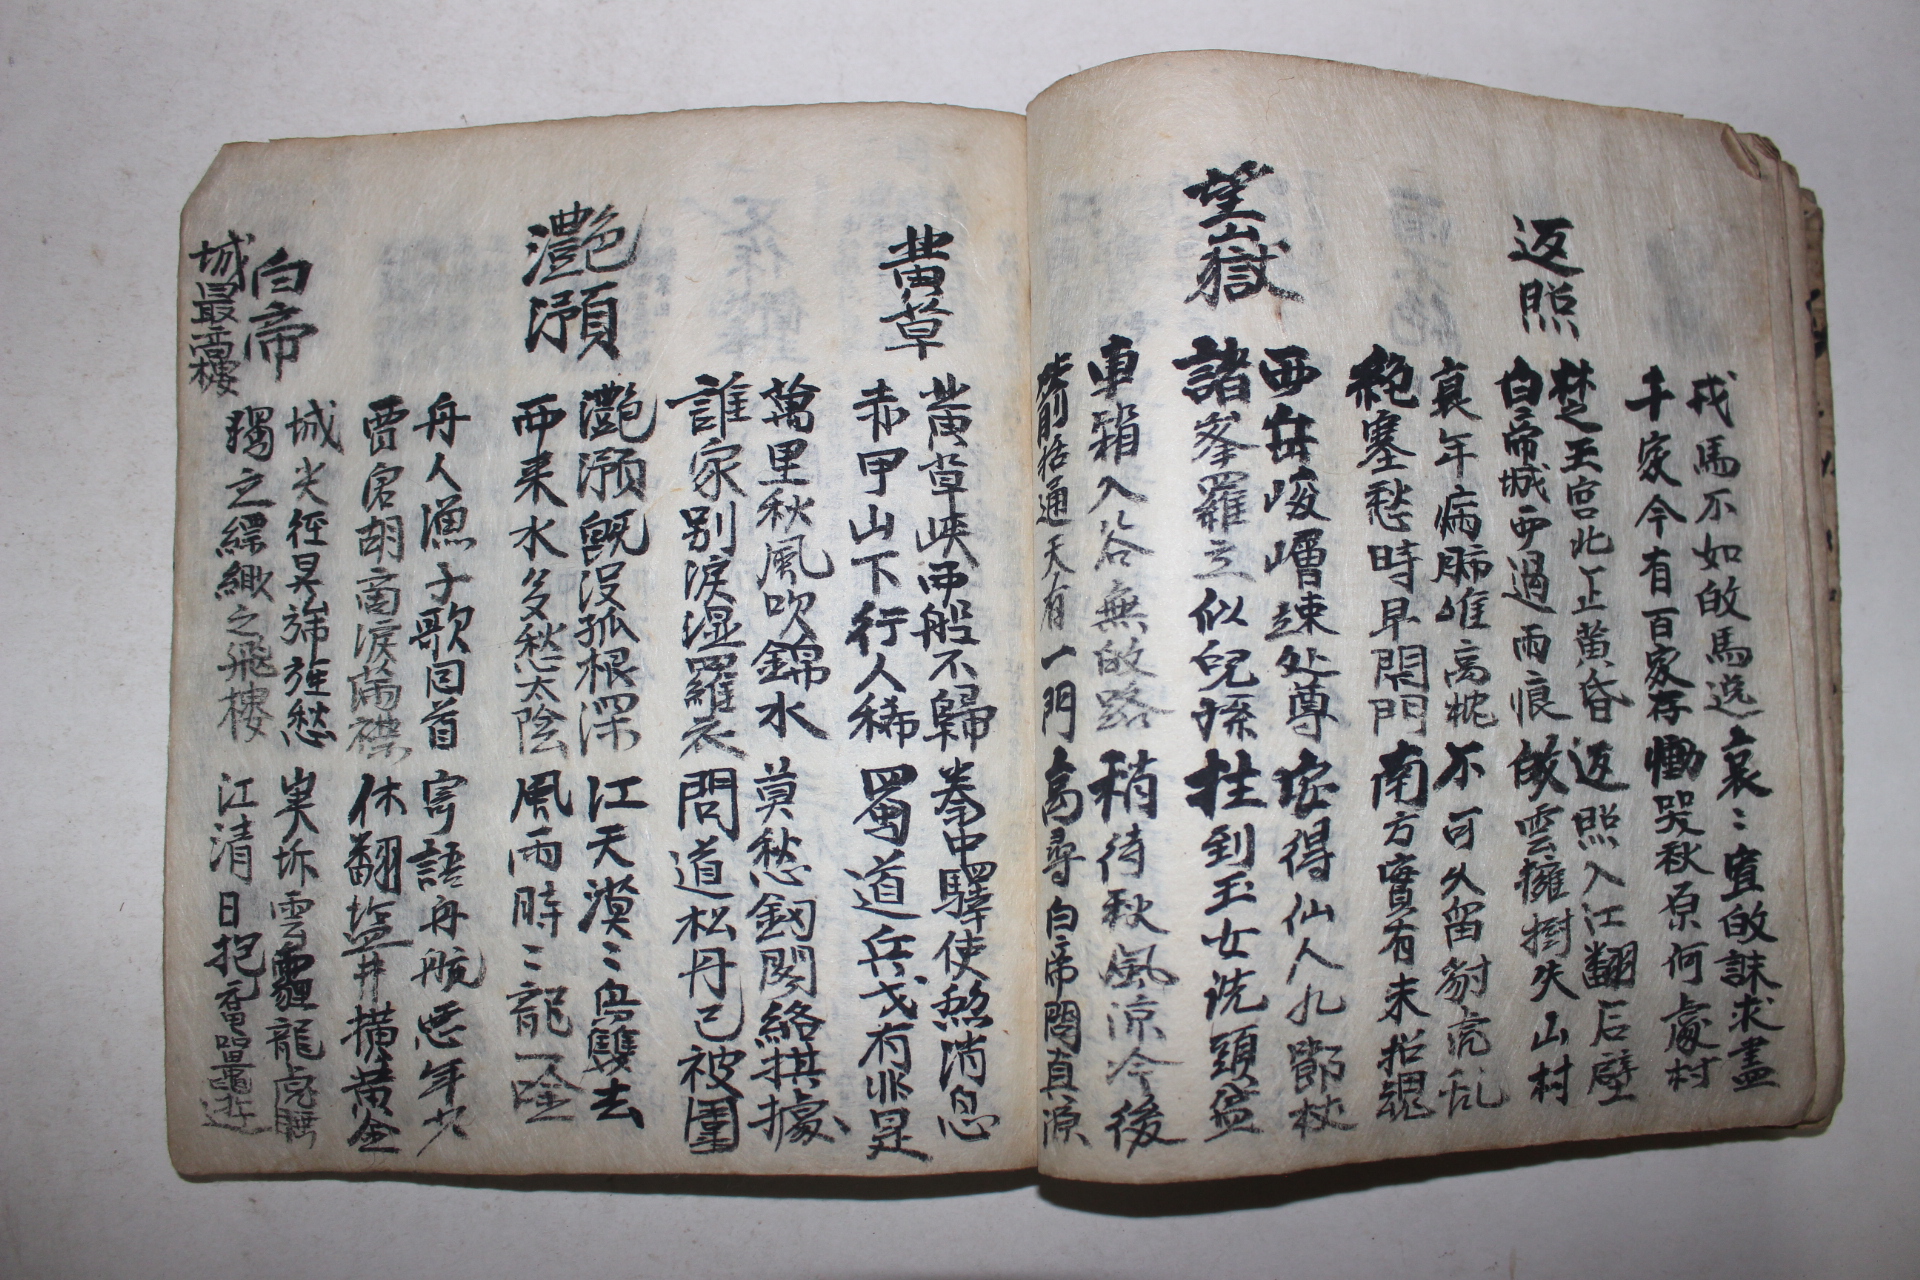 戎馬不如放馬逸 哀〻寡放誅求盡
千家今有百家存 慟哭秋原何處村
返照
楚王宮北正黃昏 返照入江翻石壁
白帝城西過雨痕 故雲擁樹失山村
衰年病肺唯高枕 不可久留豺虎乱
絶塞愁時早閉門 南方實有未招魂
望嶽
西岳崚嶒竦处尊 安得仙人九節杖
諸峯羅立似兒孫 拄到玉女洗頭盆
車箱入谷無放路 稍待秋風凉冷後
箭括通天有一門 高尋白帝問真源
黄草
黄草峽西船不歸 拳中驛使煞消息
赤甲山下行人稀 蜀道兵戈有非是
萬里秋風吹錦水 莫愁釼閣絡拱據
誰家别淚湿羅衣 問道松丹已被圍
灧澦
灧澦旣没孤根深 江天漠〻鳥雙去
西来水多愁太陰 風雨時〻龍一唫
舟人漁子歌囘首 寄語舟航惡年少
賈客胡商淚滿襟 休翻塩井横黄金
白帝城最高樓
城尖徑昃旆旌愁 嵏坼雲霾龍虎睡
獨立縹緲之飛樓 江清日抱黿鼉遊